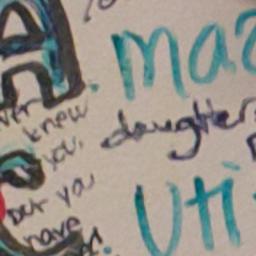 A. maz
knew
you,
but you
have
daughter
Uti